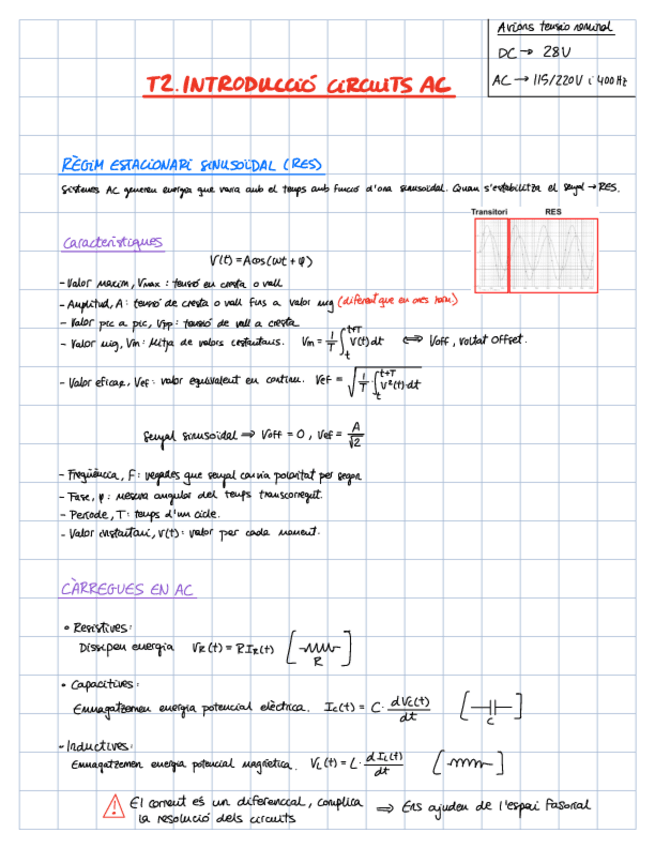 Avions tensió nominal
DC → 28V
AC → 115/220V i 400Hz
T2. INTRODUCCIÓ CIRCUITS AC
RÈGIM ESTACIONARI SINUSOÏDAL (RES)
Sistemes AC generen energia que varia amb el temps amb funció d'ona sinusoidal. Quan s'estabilitza el senyal → RES.
Transitori RES
Característiques
V(t) = A cos(ωt + φ)
- Valor màxim, Vmax : tensió en cresta o vall
- Amplitud, A : tensió de cresta o vall fins a valor mig (diferent que en ones harm)
- Valor pic a pic, Vpp : tensió de vall a cresta
- Valor mig, Vm : Mitja de valors instantanis. Vm = 1/T ∫_t^{t+T} V(t) dt ⟺ Voff, voltat offset.
- Valor eficaç, Vef : valor equivalent en continu. Vef = √(1/T ∫_t^{t+T} V²(t) dt)
Senyal sinusoïdal ⇒ Voff = 0 , Vef = A/√2
- Freqüència, F : vegades que senyal canvia polaritat per segon
- Fase, φ : mesura angular del temps transcorregut.
- Període, T : temps d'un cicle.
- Valor instantani, v(t) : valor per cada moment.
CÀRREGUES EN AC
• Resistives:
Dissipen energia VR(t) = R IR(t) [ R ]
• Capacitives:
Emmagatzemen energia potencial elèctrica. Ic(t) = C · dVc(t)/dt [ C ]
- Inductives:
Emmagatzemen energia potencial magnètica. VL(t) = L · dIL(t)/dt
! El corrent és un diferencial, complica ⇒ Ens ajuden de l'espai fasorial
la resolució dels circuits